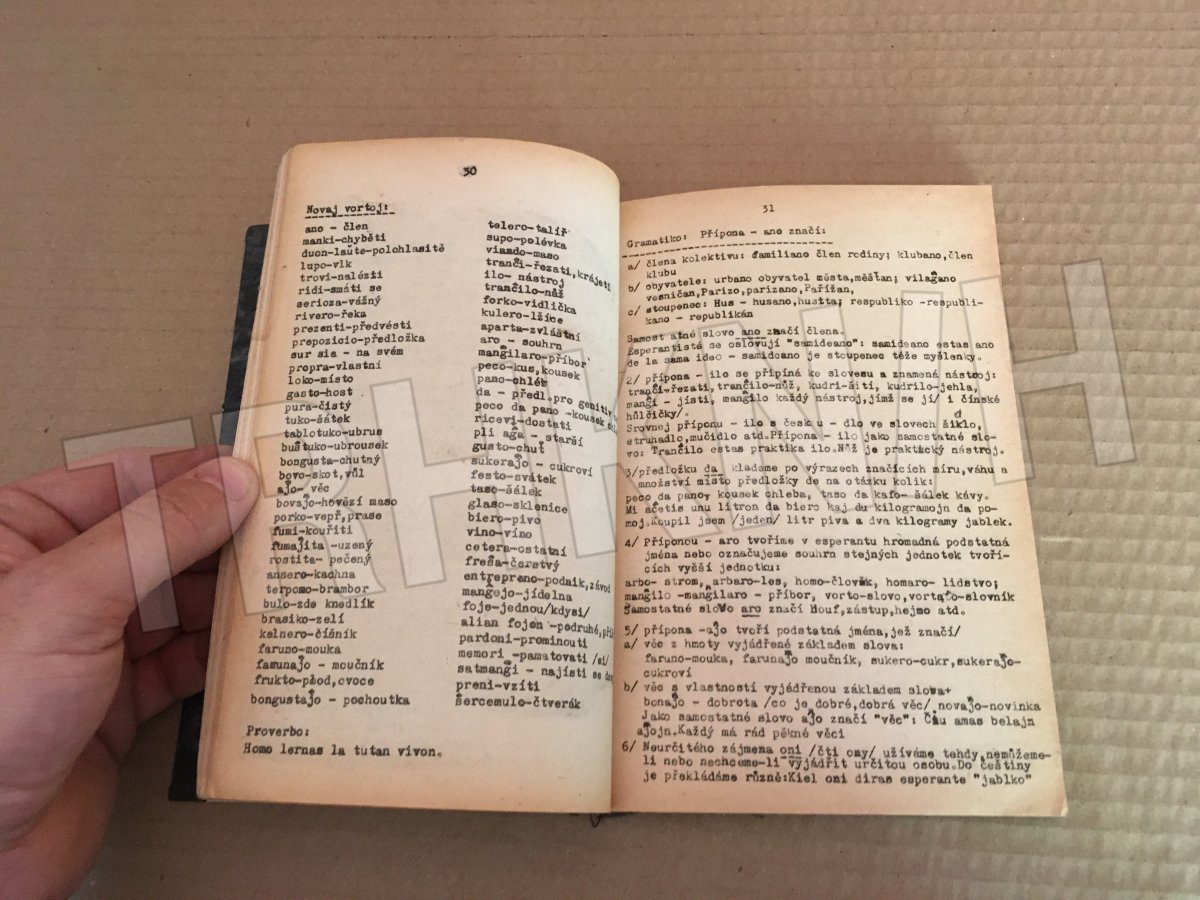 30
Novaj vortoj:
ano - člen
manki-chyběti
duon-laŭte-polohlasitě
lupo-vlk
trovi-nalézti
ridi-smáti se
serioza-vážný
rivero-řeka
prezenti-předvésti
prepozicio-předložka
sur sia - na svém
propra-vlastní
loko-místo
gasto-host
pura-čistý
tuko-šátek
tablotuko-ubrus
buŝtuko-ubrousek
bongusta-chutný
bovo-skot,vůl
aĵo- věc
bovaĵo-hovězí maso
porko-vepř,prase
fumi-kouřiti
fumaĵita -uzený
rostita- pečený
ansero-kachna
terpomo-brambor
bulo-zde knedlík
brasiko-zelí
kelnero-číšník
faruno-mouka
farunaĵo - moučník
frukto-plod,ovoce
bongustaĵo - pochoutka
Proverbo:
Homo lernas la tutan vivon.
telero-talíř
supo-polévka
viando-maso
tranĉi-řezati,krájeti
ilo- nástroj
tranĉilo-nůž
forko-vidlička
kulero-lžíce
aparta-zvláštní
aro - souhrn
manĝilaro-příbor
peco-kus,kousek
pano-chléb
da - předl.pro genitiv
peco da pano -kousek
ricevi-dostati
pli aĝa - starší
gusto-chuť
sukeraĵo - cukroví
festo-svátek
taso-šálek
glaso-sklenice
biero-pivo
vino-víno
cetera-ostatní
freŝa-čerstvý
entrepreno-podnik,závod
manĝejo-jídelna
foje-jednou/kdysi/
alian fojon -podruhé,
pardoni-prominouti
memori -pamatovati /si/
satmanĝi - najísti se
preni-vzíti
ŝercemulo-čtverák
31
Gramatiko: Přípona - ano značí:
a/ člena kolektivu: familiano člen rodiny; klubano,člen
klubu
b/ obyvatele: urbano obyvatel města,měšťan; vilaĝano
vesničan,Parizo,parizano,Pařížan,
c/ stoupenec: Hus - husano,husita; respubliko -respubli-
kano - republikán
Samostatné slovo ano značí člena.
Esperantisté se oslovují "samideano": samideano estas ano
de la sama ideo - samideano je stoupenec téže myšlenky.
2/ přípona - ilo se připíná ke slovesu a znamená nástroj:
tranĉi-řezati,tranĉilo-nůž, kudri-šití, kudrilo-jehla,
manĝi - jísti, manĝilo každý nástroj,jímž se jí/ i čínské
hůlčičky/.
Srovnej příponu - ilo s česku - dlo ve slovech šídlo,
struhadlo,mučidlo atd.Přípona - ilo jako samostatné slo-
vo: Tranĉilo estas praktika ilo.Nůž je praktický nástroj.
3/předložku da klademe po výrazech značících míru,váhu a
množství místo předložky de na otázku kolik:
peco da panoy kousek chleba, taso da kafo- šálek kávy.
Mi aĉetis unu litron da biero kaj du kilogramojn da po-
moj.Koupil jsem /jeden/ litr piva a dva kilogramy jablek.
4/ Příponou - aro tvoříme v esperantu hromadná podstatná
jména nebo označujeme souhrn stejných jednotek tvoří-
cích vyšší jednotku:
arbo- strom, arbaro-les, homo-člověk, homaro- lidstvo;
manĝilo -manĝilaro - příbor, vorto-slovo,vortaro-slovník
Samostatné slovo aro značí houf,zástup,hejmo atd.
5/ přípona -aĵo tvoří podstatná jména,jež značí/
a/ věc z hmoty vyjádřené základem slova:
faruno-mouka, farunaĵo moučník, sukero-cukr,sukeraĵo-
cukroví
b/ věc s vlastností vyjádřenou základem slova+
bonaĵo - dobrota /co je dobré,dobrá věc/ novaĵo-novinka
Jako samostatné slovo aĵo značí "věc": Ĉiu amas belajn
aĵojn.Každý má rád pěkné věci
6/ Neurčitého zájmena oni /čti ony/ užíváme tehdy,nemůžeme-
li nebo nechceme-li vyjádřit určitou osobu.Do češtiny
je překládáme různě:Kiel oni diras esperante "jablko"